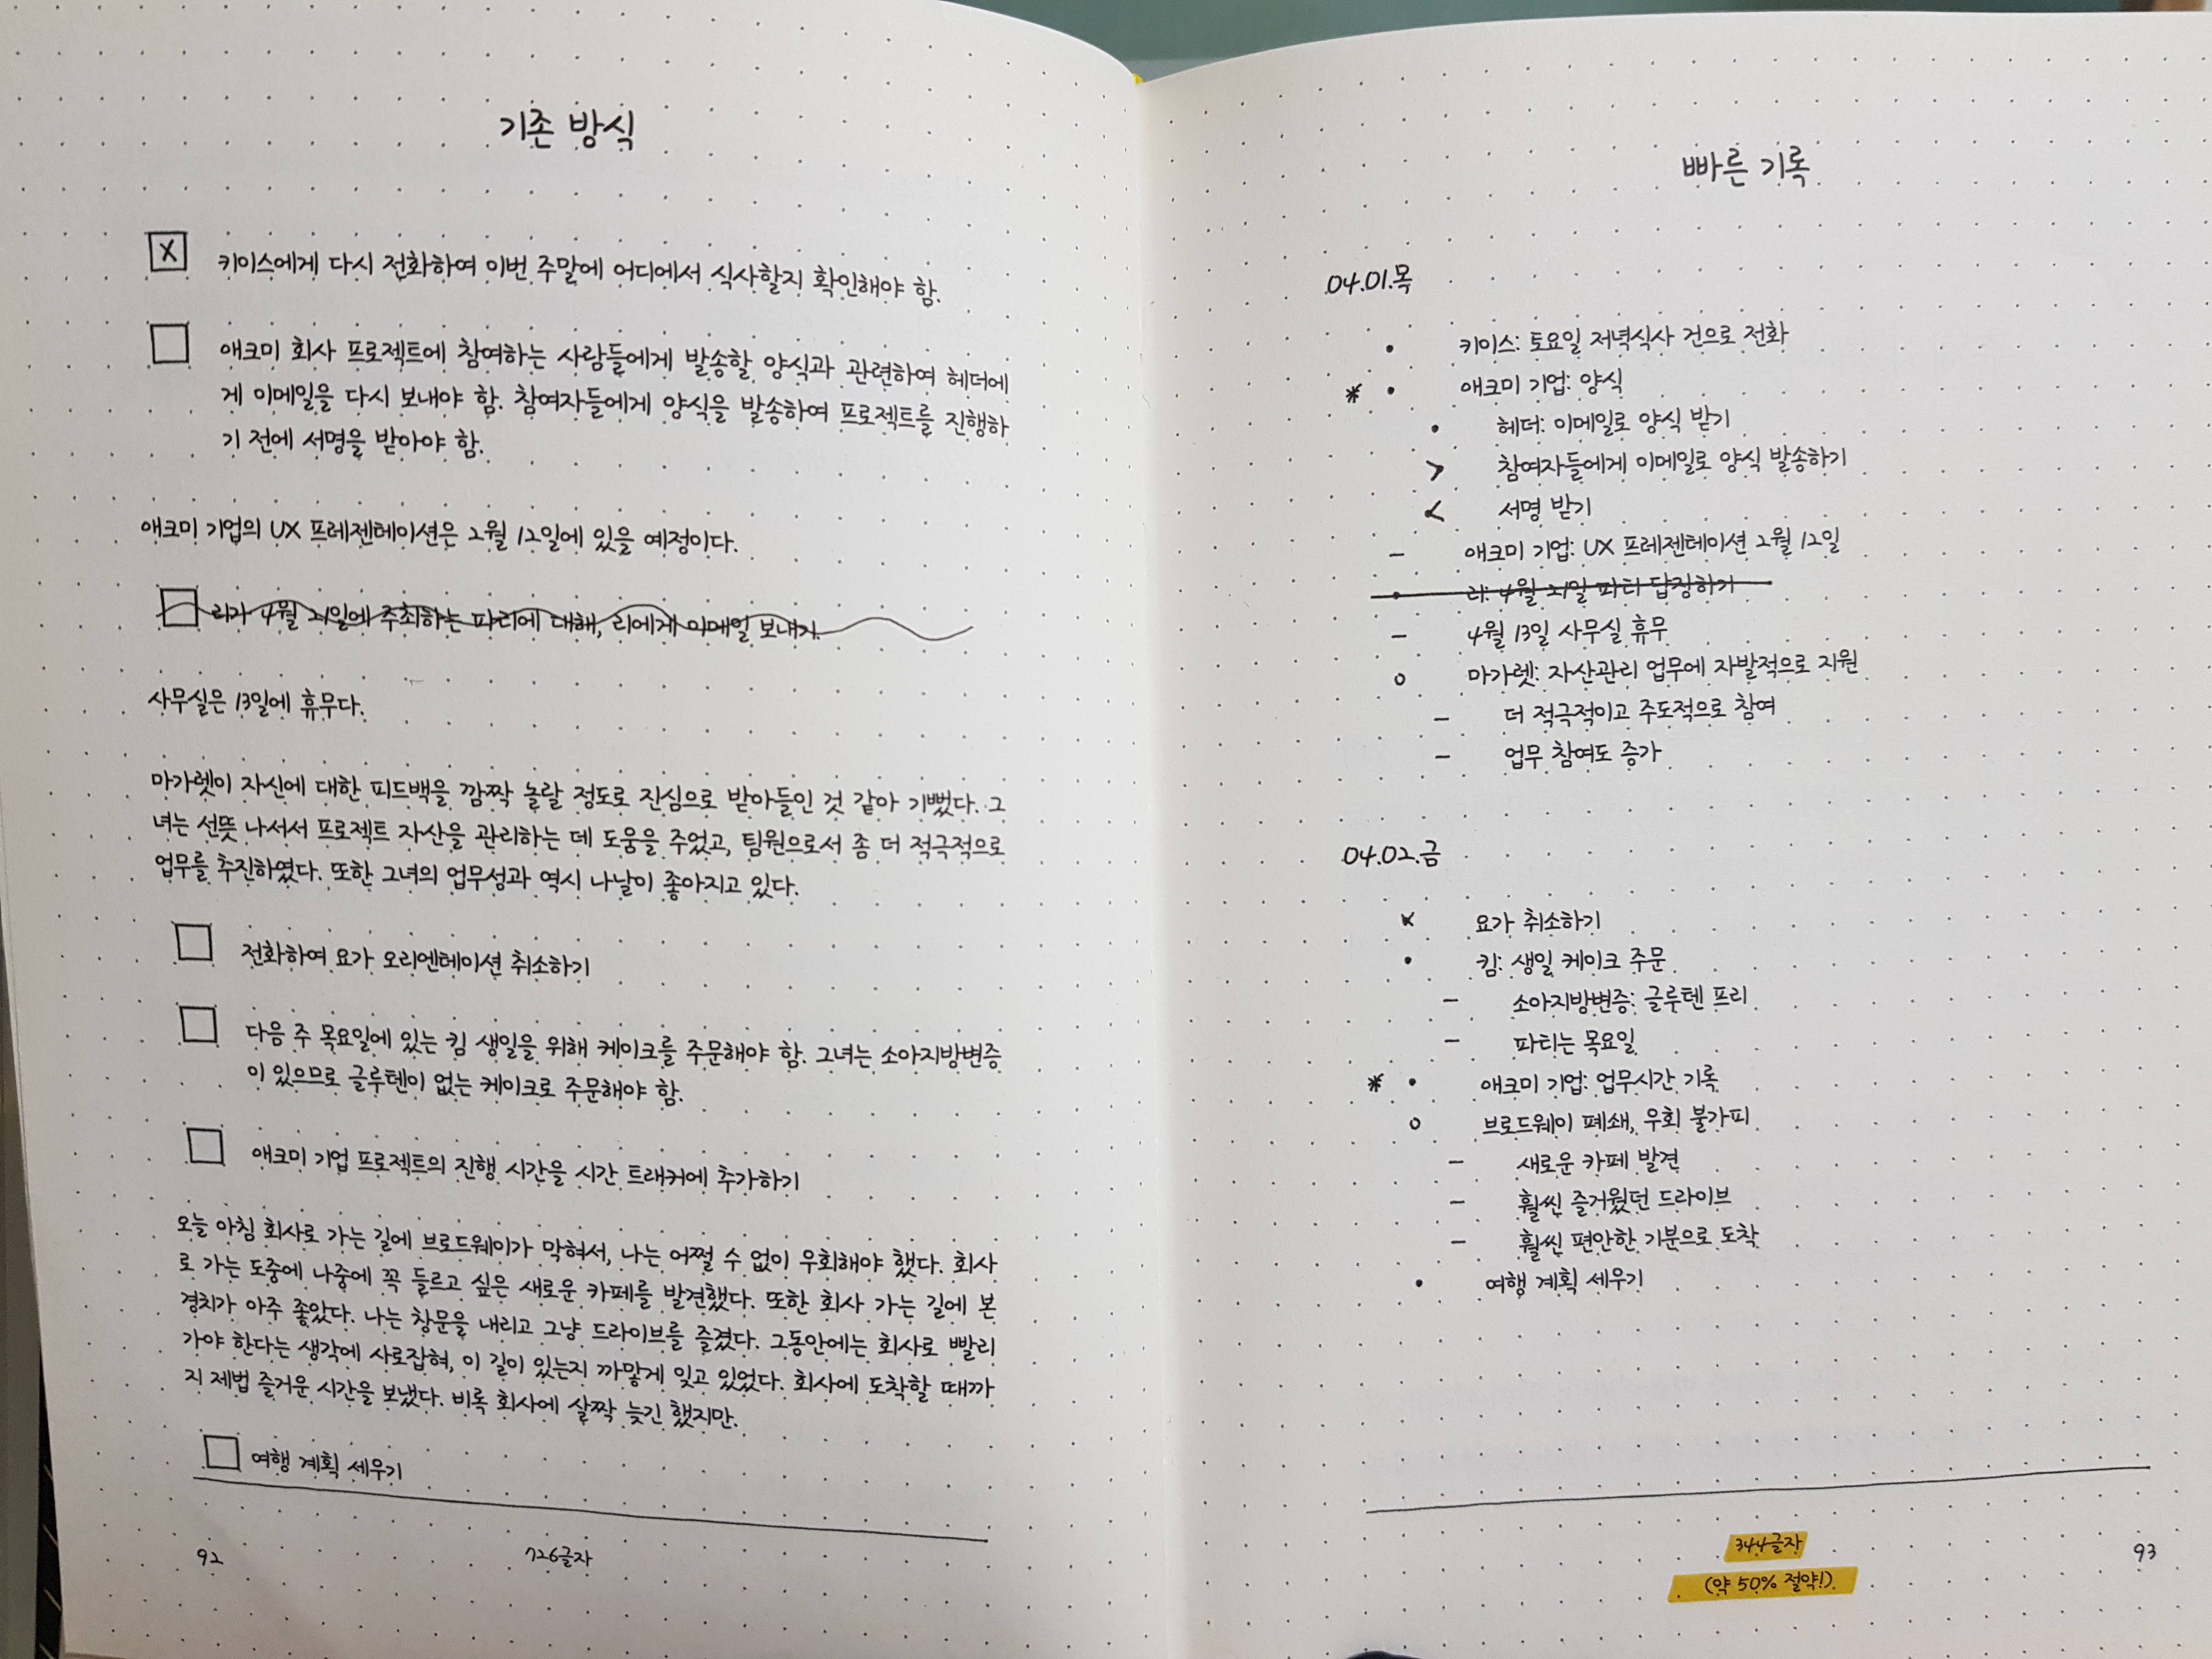 기존 방식
X
키이스에게 다시 전화하여 이번 주말에 어디에서 식사할지 확인해야 함.
애크미 회사 프로젝트에 참여하는 사람들에게 발송할 양식과 관련하여 헤더에
게 이메일을 다시 보내야 함. 참여자들에게 양식을 발송하여 프로젝트를 진행하
기 전에 서명을 받아야 함.
애크미 기업의 UX 프레젠테이션은 2월 12일에 있을 예정이다.
리가 4월 21일에 주최하는 파티에 대해, 리에게 이메일 보내기.
사무실은 13일에 휴무다.
마가렛이 자신에 대한 피드백을 깜짝 놀랄 정도로 진심으로 받아들인 것 같아 기뻤다. 그
녀는 선뜻 나서서 프로젝트 자산을 관리하는 데 도움을 주었고, 팀원으로서 좀 더 적극적으로
업무를 추진하였다. 또한 그녀의 업무성과 역시 나날이 좋아지고 있다.
전화하여 요가 오리엔테이션 취소하기
다음 주 목요일에 있는 킴 생일을 위해 케이크를 주문해야 함. 그녀는 소아지방변증
이 있으므로 글루텐이 없는 케이크로 주문해야 함.
애크미 기업 프로젝트의 진행 시간을 시간 트래커에 추가하기
오늘 아침 회사로 가는 길에 브로드웨이가 막혀서, 나는 어쩔 수 없이 우회해야 했다. 회사
로 가는 도중에 나중에 꼭 들르고 싶은 새로운 카페를 발견했다. 또한 회사 가는 길에 본
경치가 아주 좋았다. 나는 창문을 내리고 그냥 드라이브를 즐겼다. 그동안에는 회사로 빨리
가야 한다는 생각에 사로잡혀, 이 길이 있는지 까맣게 잊고 있었다. 회사에 도착할 때까
지 제법 즐거운 시간을 보냈다. 비록 회사에 살짝 늦긴 했지만.
여행 계획 세우기
92
726글자
빠른 기록
04.01.목
• 키이스: 토요일 저녁식사 건으로 전화
* • 애크미 기업: 양식
• 헤더: 이메일로 양식 받기
> 참여자들에게 이메일로 양식 발송하기
< 서명 받기
– 애크미 기업: UX 프레젠테이션 2월 12일
• 리: 4월 21일 파티 답장하기
– 4월 13일 사무실 휴무
o 마가렛: 자산관리 업무에 자발적으로 지원
– 더 적극적이고 주도적으로 참여
– 업무 참여도 증가
04.02.금
x 요가 취소하기
• 킴: 생일 케이크 주문
– 소아지방변증: 글루텐 프리
– 파티는 목요일
* • 애크미 기업: 업무시간 기록
o 브로드웨이 폐쇄, 우회 불가피
– 새로운 카페 발견
– 훨씬 즐거웠던 드라이브
– 훨씬 편안한 기분으로 도착
• 여행 계획 세우기
344글자
(약 50% 절약!)
93